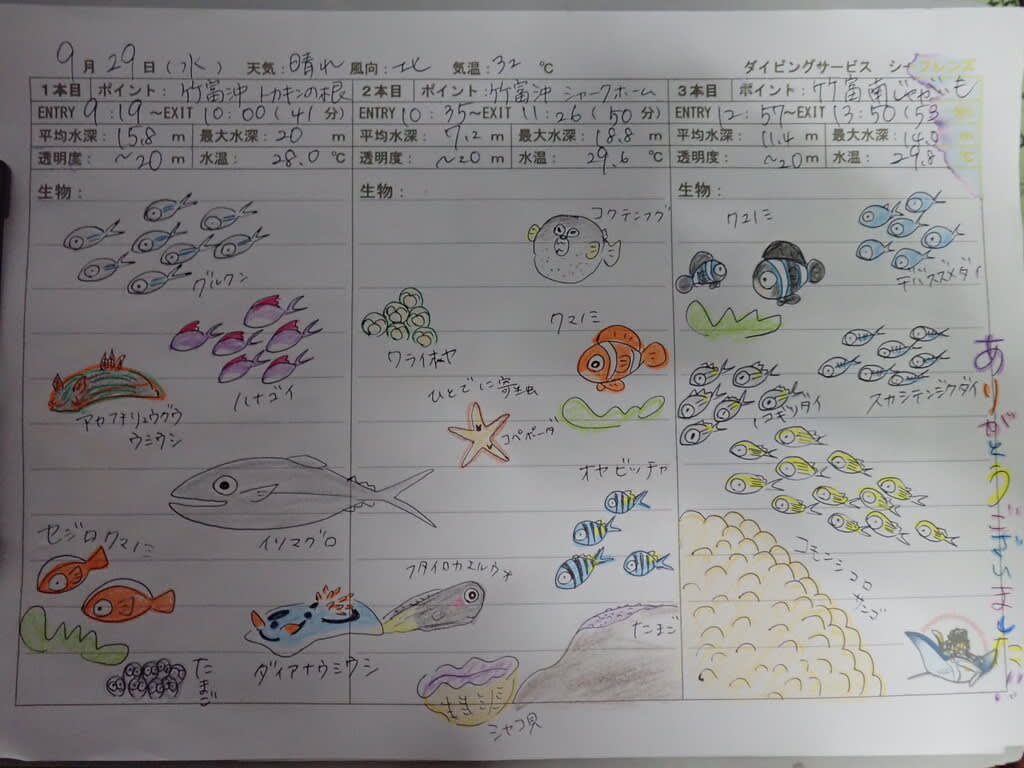 9月29日(水) 天気:晴れ 風向:北 気温:32℃ ダイビングサービス シーフレンズ
1本目 ポイント:竹富沖 トカキンの根
ENTRY 9:19~EXIT 10:00(41分)
平均水深:15.8m 最大水深:20m
透明度:~20m 水温:28.0℃
生物:
グルクン
ハナゴイ
アカフチリュウグウ
ウミウシ
イソマグロ
セジロクマノミ
たまご
ダイアナウミウシ
2本目 ポイント:竹富沖 シャークホーム
ENTRY 10:35~EXIT 11:26(50分)
平均水深:7.2m 最大水深:18.8m
透明度:~20m 水温:29.6℃
生物:
コクテンフグ
ワライボヤ
クマノミ
ひとでに寄生虫
コペポーダ
オヤビッチャ
フタイロカエルウオ
たまご
シャコ貝
3本目 ポイント:竹富南じゃがいも
ENTRY 12:57~EXIT 13:50(53
平均水深:11.4m 最大水深:14.0
透明度:~20m 水温:29.8
生物:
クマノミ
デバスズメダイ
スカシテンジクダイ
ノコギリダイ
コモンシコロ
サンゴ
ありがとうございました